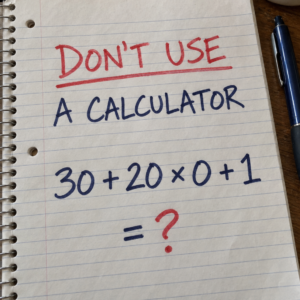 DON'T USE
A CALCULATOR
30 + 20 × 0 + 1
= ?